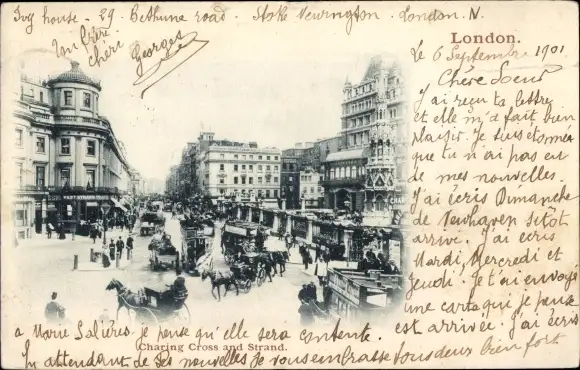 Ivy house - 29 Bethune road - Stoke Newington - London. N.
Ton frère
chéri
Georges
London.
le 6 Septembre 1901
Chère Soeur
J'ai reçu ta lettre
et elle m'a fait bien
plaisir. Je suis étonnée
que tu n'ai pas eut
de mes nouvelles.
J'ai écris Dimanche
de Newhaven sitôt
arrivé. J'ai écris
Mardi, Mercredi et
Jeudi. Je t'ai envoyé
une carte qui je pense
est arrivée. J'ai écris
a Marie Salières je pense qu'elle sera contente.
Charing Cross and Strand.
En attendant de tes nouvelles je vous embrasse tous deux bien fort